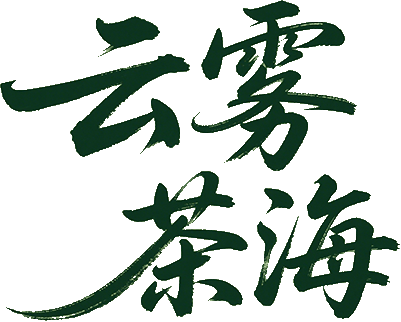 云雾
茶海